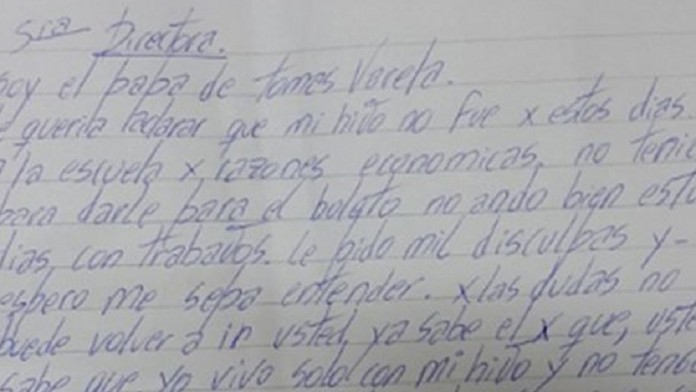 Sra Directora.
soy el papa de tomas Varela.
queria aclarar que mi hijo no fue x estos dias
a la escuela x razones economicas. no tenia
para darle para el boleto no ando bien esto
dias con trabajos. Le pido mil disculpas y-
espero me sepa entender. x las dudas no
puede volver a ir usted ya sabe el x que, uste
sabe que yo vivo solo con mi hijo y no teng